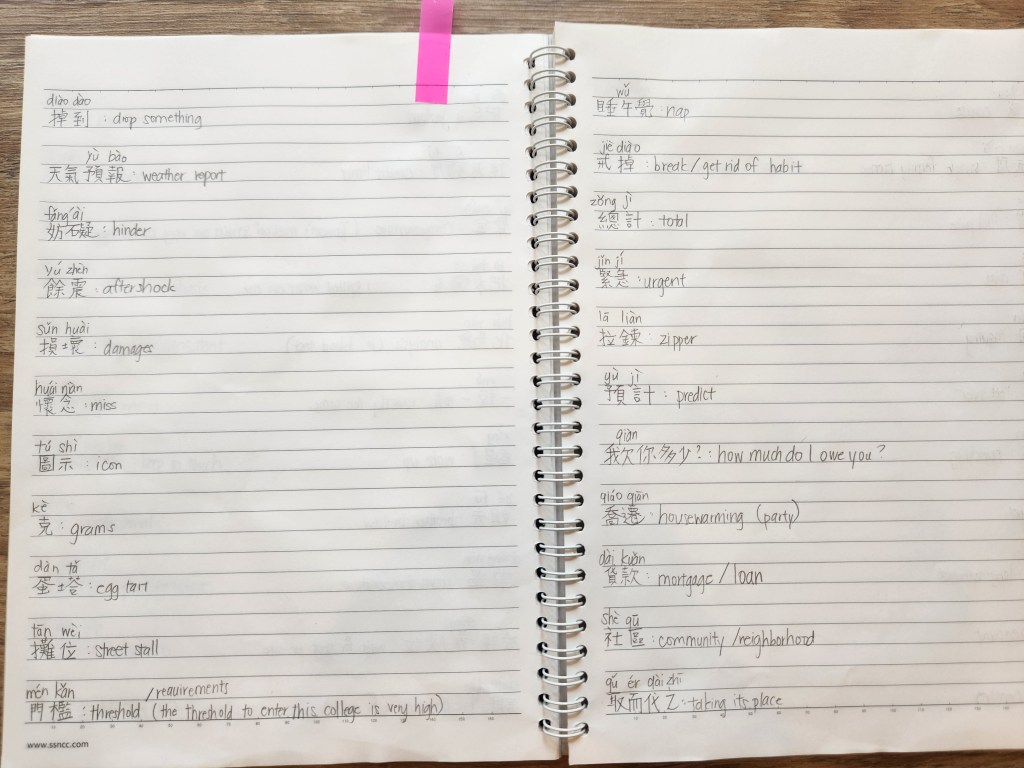 diào dào
掉到 : drop something
yù bào
天氣預報 : weather report
fáng ài
妨礙 : hinder
yú zhèn
餘震 : aftershock
sǔn huài
損壞 : damages
huái niàn
懷念 : miss
tú shì
圖示 : icon
kè
克 : grams
dàn tǎ
蛋塔 : egg tart
tān wèi
攤位 : street stall
mén kǎn /requirements
門檻 : threshold (the threshold to enter this college is very high)
www.ssncc.com
wǔ
睡午覺 : nap
jiè diào
戒掉 : break/get rid of habit
zǒng jì
總計 : total
jǐn jí
緊急 : urgent
lā liàn
拉鍊 : zipper
yù jì
預計 : predict
qiàn
我欠你多少? : how much do I owe you?
qiáo qiān
喬遷 : housewarming (party)
dài kuǎn
貸款 : mortgage/loan
shè qū
社區 : community/neighborhood
qǔ ér dài zhī
取而代之 : taking its place